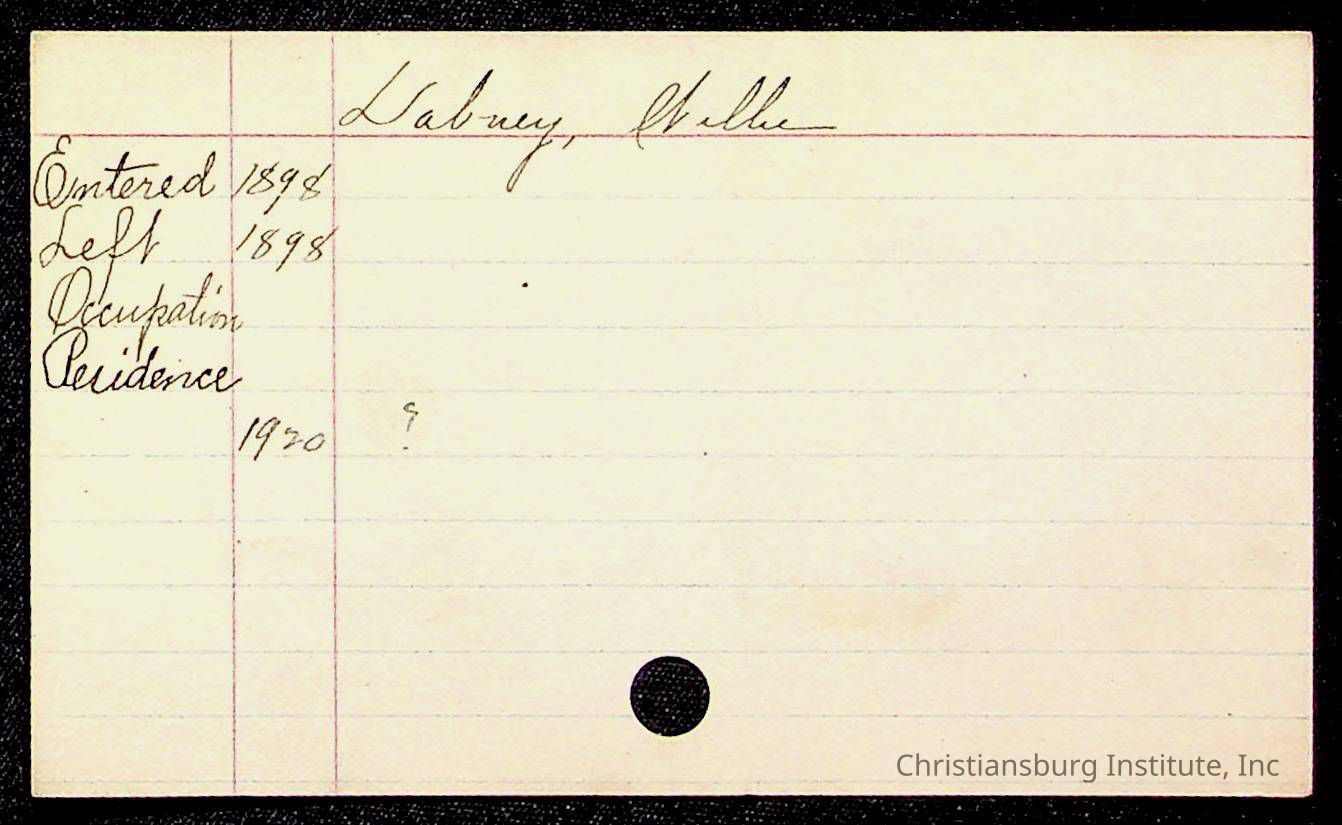 Dabney, Willie
Entered 1898
Left 1898
Occupation
Residence
1920 ?
Christiansburg Institute, Inc